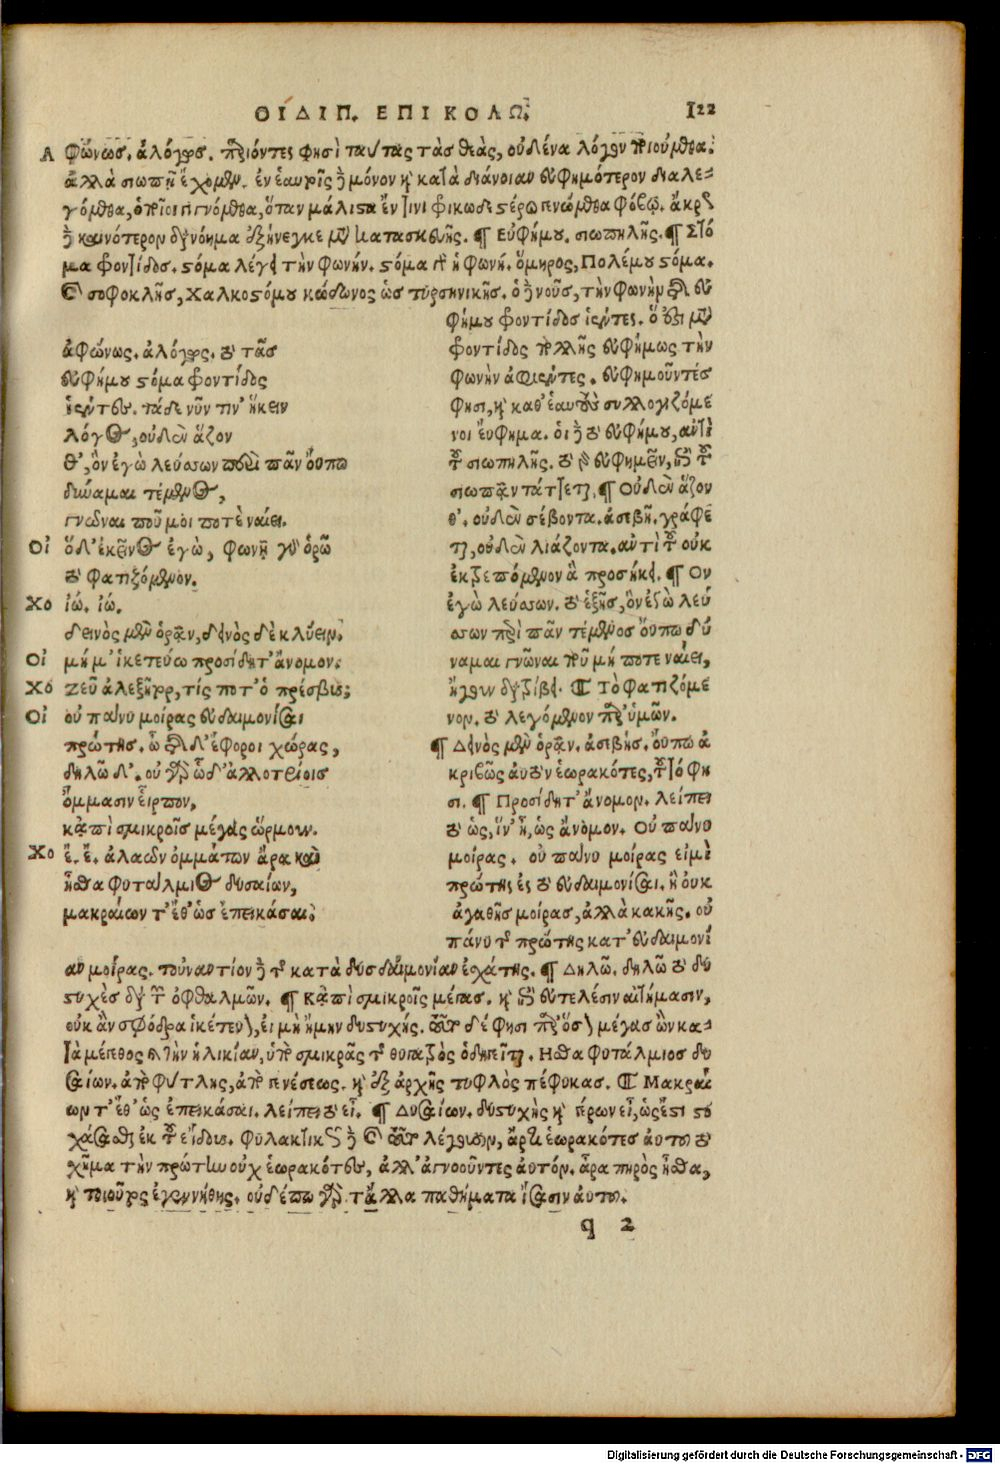 ΟΙΔΙΠ. ΕΠΙ ΚΟΛΩ. 122
Αφώνως. ἀλόγως. φησὶ ταύτας τὰς θεὰς, οὐδένα λόγον ποιούμεθα.
ἀλλὰ σιωπῇ ἔχομεν. ἐν ἑαυτοῖς δὲ μόνον καὶ κατὰ διάνοιαν εὐφημότερον διαλε-
γόμεθα, ὅταν μάλιστα ἔν τινι φόβῳ.
καινότερον διανόημα ἐξήνεγκε μετὰ κατασκευῆς. ¶ Εὐφήμου. σιωπηλῆς. ¶ Στό
μα φροντίδος. στόμα λέγει τὴν φωνήν. στόμα γὰρ ἡ φωνή. ὅμηρος, Πολέμου στόμα.
καὶ σοφοκλῆς, Χαλκοστόμου κώδωνος ὡς τυρσηνικῆς. ὁ δὲ νοῦς, τὴν φωνὴν διὰ εὐ
φήμου φροντίδος ἱέντες. ὅ ἐστι μετὰ
φροντίδος πολλῆς εὐφήμως τὴν
φωνὴν ἀφιέντες. εὐφημοῦντές
φησι, καὶ καθ' ἑαυτοὺς συλλογιζόμε
νοι εὔφημα. οἱ δὲ τὸ εὐφήμου, ἀντὶ
τοῦ σιωπηλῆς. τὸ γὰρ εὐφημεῖν, ἐπὶ τοῦ
σιωπᾶν τάττεται. ¶ Οὐδὲν ἅζον
θ'. οὐδὲν σέβοντα. ἀσεβῆ. γράφε
ται, οὐδὲν λιάζοντα. ἀντὶ τοῦ οὐκ
ἐκτρεπόμενον ἃ προσήκει. ¶ Ον
ἐγὼ λεύσσων. τὸ ἑξῆς, ὃν ἐγὼ λεύ
σσων περὶ πᾶν τέμενος οὔπω δύ
ναμαι γνῶναι ποῦ μή ποτε ναίει,
ἤγουν διατρίβει. ¶ Τὸ φατιζόμε
νον. τὸ λεγόμενον παρ' ὑμῶν.
¶ Δεινὸς μὲν ὁρᾶν. ἀσεβής. οὔπω ἀ
κριβῶς αὐτὸν ἑωρακότες, τοῦτό φη
σι. ¶ Προσίδητ' ἄνομον. λείπει
τὸ ὡς, ἵν' ᾖ, ὡς ἄνομον. Οὐ πάνυ
μοίρας. οὐ πάνυ μοίρας εἰμὶ
πρώτης ἐς τὸ εὐδαιμονίσαι. ἢ οὐκ
ἀγαθῆς μοίρας, ἀλλὰ κακῆς. οὐ
πάνυ τῆς πρώτης κατ' εὐδαιμονί
ἀφώνως. ἀλόγως. τὸ τᾶς
εὐφήμου στόμα φροντίδος
ἱέντες. τάδε νῦν τιν' ἥκειν
λόγος, οὐδὲν ἅζον
θ', ὃν ἐγὼ λεύσσων περὶ πᾶν οὔπω
δύναμαι τέμενος,
γνῶναι ποῦ μοι ποτὲ ναίει.
Οἰ ὅδ' ἐκεῖνος ἐγὼ, φωνῇ γὰρ ὁρῶ
τὸ φατιζόμενον.
Χο ἰώ. ἰώ.
δεινὸς μὲν ὁρᾶν, δεινὸς δὲ κλύειν.
Οἰ μή μ' ἱκετεύω προσίδητ' ἄνομον.
Χο Ζεῦ ἀλεξῆτορ, τίς ποτ' ὁ πρέσβυς;
Οἰ οὐ πάνυ μοίρας εὐδαιμονίσαι
πρώτης. ὦ τῆσδ' ἔφοροι χώρας,
δηλῶ δ'. οὐ γὰρ ὧδ' ἀλλοτρίοις
ὄμμασιν εἷρπον,
κἀπὶ σμικροῖς μέγας ὥρμουν.
Χο ἔ. ἔ. ἀλαῶν ὀμμάτων ἆρα καὶ
ἦσθα φυτάλμιος δυσαίων,
μακραίων τ' ἔθ' ὡς ἐπεικάσαι.
αν μοίρας. τοὐναντίον δὲ τῆς κατὰ δυσδαιμονίαν ἐσχάτης. ¶ Δηλῶ. δηλῶ τὸ δυ
στυχὲς διὰ τῶν ὀφθαλμῶν. ¶ Κἀπὶ σμικροῖς μέγας. καὶ ἐπὶ εὐτελέσιν αἰτήμασιν,
οὐκ ἂν σφόδρα ἱκέτευον, εἰ μὴ ἤμην δυστυχής. τοῦτο δέ φησι παρ' ὅσον μέγας ὢν κα-
τὰ μέγεθος καὶ τὴν ἡλικίαν, ὑπὸ σμικρᾶς τῆς θυγατρὸς ὁδηγεῖται. Ησθα φυτάλμιος δυ
σαίων. ἀπὸ φύτλης, ἀπὸ γενέσεως. καὶ ἐξ ἀρχῆς τυφλὸς πέφυκας. ¶ Μακραί
ων τ' ἔθ' ὡς ἐπεικάσαι. λείπει τὸ εἶ. ¶ Δυσαίων. δυστυχὴς καὶ γέρων εἶ, ὡς ἔστι στο
χάσασθαι ἐκ τοῦ εἴδους. φυλακτικῶς δὲ καὶ τοῦτο λέγουσιν, ἄρτι ἑωρακότες αὐτοῦ τὸ
σχῆμα τὴν πρώτην οὐχ ἑωρακότες, ἀλλ' ἀγνοοῦντες αὐτόν. ἆρα πηρὸς ἦσθα,
καὶ τοιοῦτος ἐγεννήθης. οὐδέπω γὰρ τἄλλα παθήματα ἴσασιν αὐτοῦ.
q 2
Digitalisierung gefördert durch die Deutsche Forschungsgemeinschaft - DFG